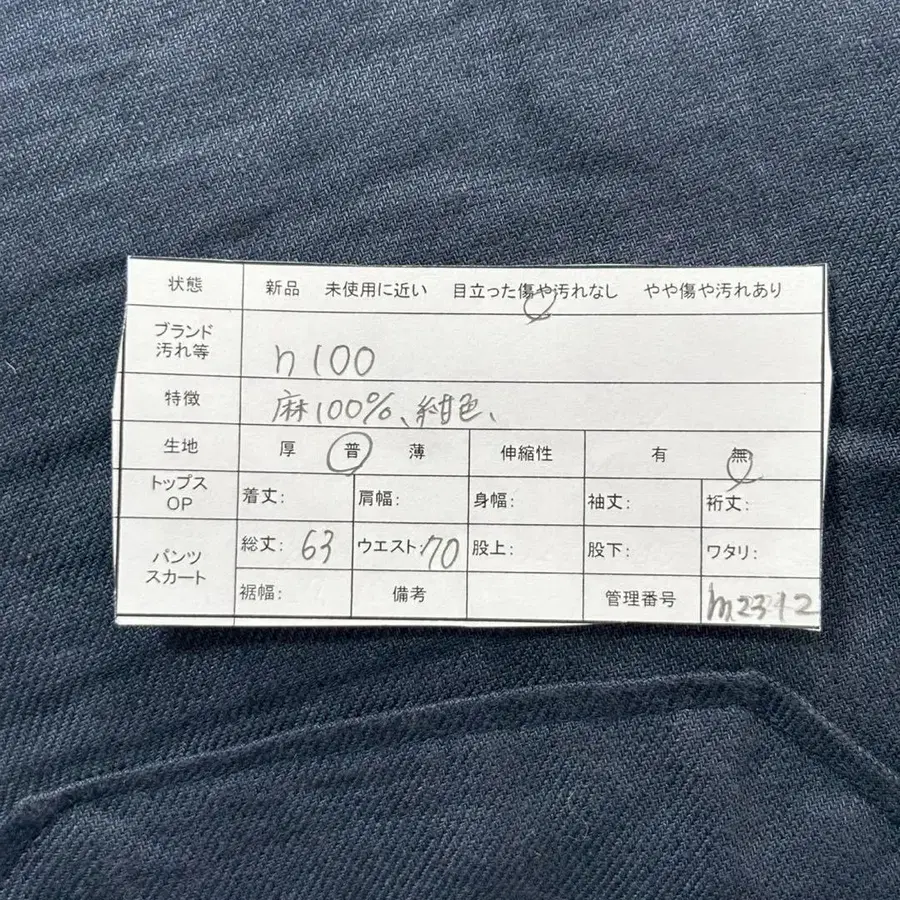 状態 新品 未使用に近い 目立った傷や汚れなし やや傷や汚れあり
ブランド
汚れ等 n100
特徴 麻100%、紺色、
生地 厚 普 薄 伸縮性 有 無
トップス
OP 着丈: 肩幅: 身幅: 袖丈: 裄丈:
パンツ
スカート 総丈: 63 ウエスト: 70 股上: 股下: ワタリ:
裾幅: 備考 管理番号 m2312